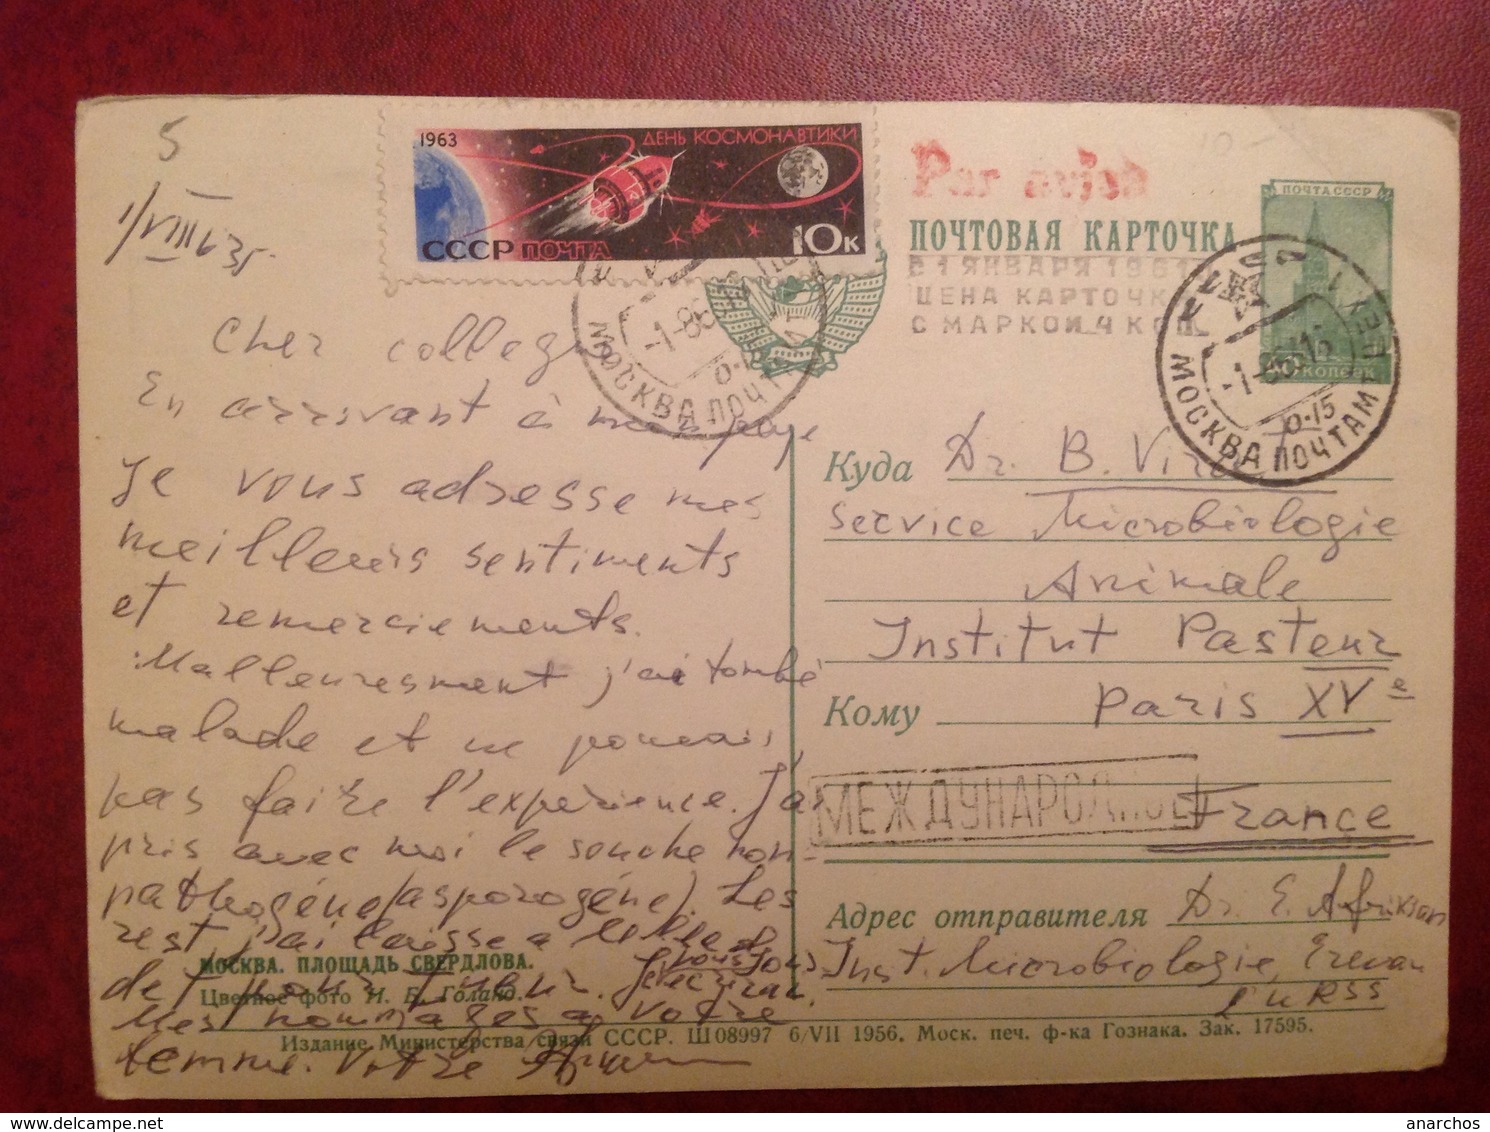 5
1/VIII 63г.
1963
ДЕНЬ КОСМОНАВТИКИ
СССР ПОЧТА
10к
Par avion
ПОЧТОВАЯ КАРТОЧКА
С 1 ЯНВАРЯ 1961
ЦЕНА КАРТОЧК
С МАРКОЙ 4 КОП
ПОЧТА СССР
40 КОПЕЕК
МОСКВА ПОЧТАМТ
МОСКВА ПОЧТАМТ
0-15
Cher collegue
En arrivant à mon paye
Je vous adresse mes
meilleurs sentiments
et remerciements.
Malleuresment j'ai tombé
malade et ne pouvais
pas faire l'expérience. J'ai
pris avec moi le souche non-
pathogéne (asporogéne). Les
rest, j'ai laisse a
de pour vous
Mes hommages a votre
femme. Votre
Куда Dr. B. Virat
Service Microbiologie
Animale
Institut Pasteur
Кому Paris XVe
МЕЖДУНАРОДНОЕ
France
Адрес отправителя Dr. E. Afrikian
Inst. Microbiologie, Erevan
l'URSS
МОСКВА. ПЛОЩАДЬ СВЕРДЛОВА.
Цветное фото Н. Б. Голанд.
Издание Министерства связи СССР. Ш 08997 6/VII 1956. Моск. печ. ф-ка Гознака. Зак. 17595.
anarchos